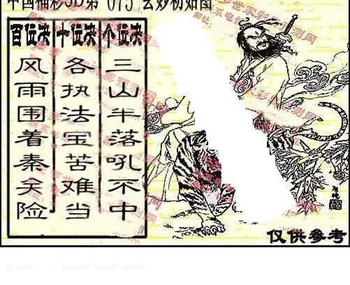 中国福彩3D第 075
百位决
十位决
个位决
风雨围着秦关险
各执法宝苦难当
三山半落吼不中
仅供参考